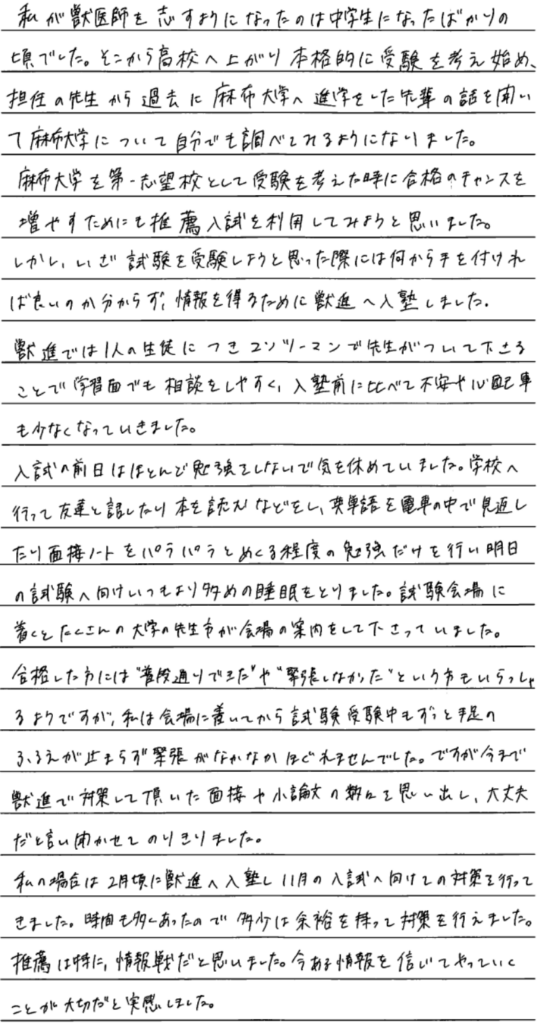 私が獣医師を志すようになったのは中学生になったばかりの
頃でした。そこから高校へ上がり本格的に受験を考え始め、
担任の先生から過去に麻布大学へ進学をした先輩の話を聞い
て麻布大学について自分でも調べてみるようになりました。
麻布大学を第一志望校として受験を考えた時に合格のチャンスを
増やすためにも推薦入試を利用してみようと思いました。
しかし、いざ試験を受験しようと思った際には何から手を付けれ
ば良いのか分からず、情報を得るために獣進へ入塾しました。
獣進では1人の生徒につきマンツーマンで先生がついて下さる
ことで学習面でも相談をしやすく、入塾前に比べて不安や心配事
も少なくなっていきました。
入試の前日はほとんど勉強をしないで気を休めていました。学校へ
行って友達と話したり本を読んだりなどをし、英単語を電車の中で見返し
たり面接ノートをパラパラとめくる程度の勉強だけを行い明日
の試験へ向けいつもより多めの睡眠をとりました。試験会場に
着くとたくさんの大学の先生方が会場の案内をして下さっていました。
合格した方には"普段通りできた"や"緊張しなかった"という方もいらっしゃ
るようですが、私は会場に着いてから試験受験中もずっと手足の
ふるえが止まらず緊張がなかなかほぐれませんでした。ですが今まで
獣進で対策して頂いた面接や小論文の数々を思い出し、大丈夫
だと言い聞かせてのりきりました。
私の場合は2月頃に獣進へ入塾し11月の入試へ向けての対策を行って
きました。時間も多くあったので多少は余裕を持って対策を行えました。
推薦は特に、情報戦だと思いました。今ある情報を信じてやっていく
ことが大切だと実感しました。